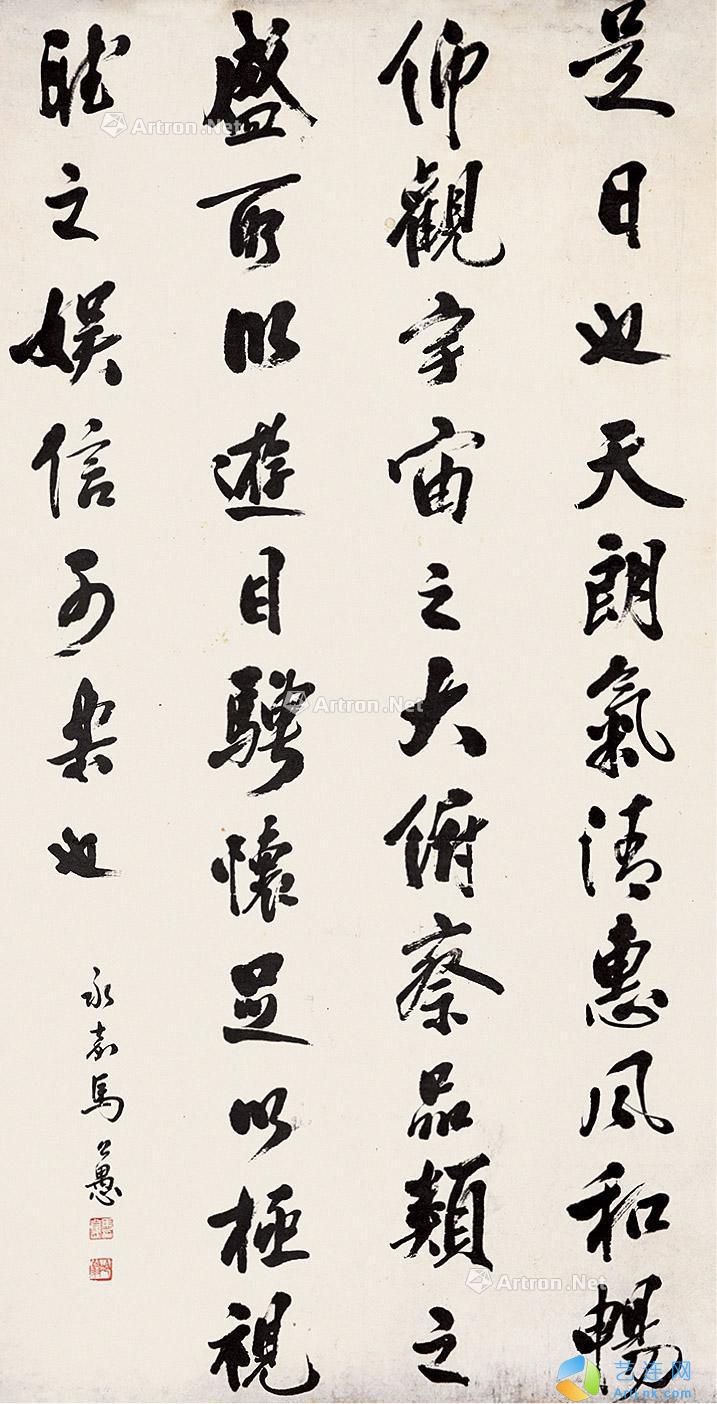 是日也天朗氣清惠風和暢
仰觀宇宙之大俯察品類之
盛所以遊目騁懷足以極視
聽之娱信可樂也
永嘉馬公愚
Artron.Net
Artron.Net
Artron.Net
艺连网
ArtLnk.com